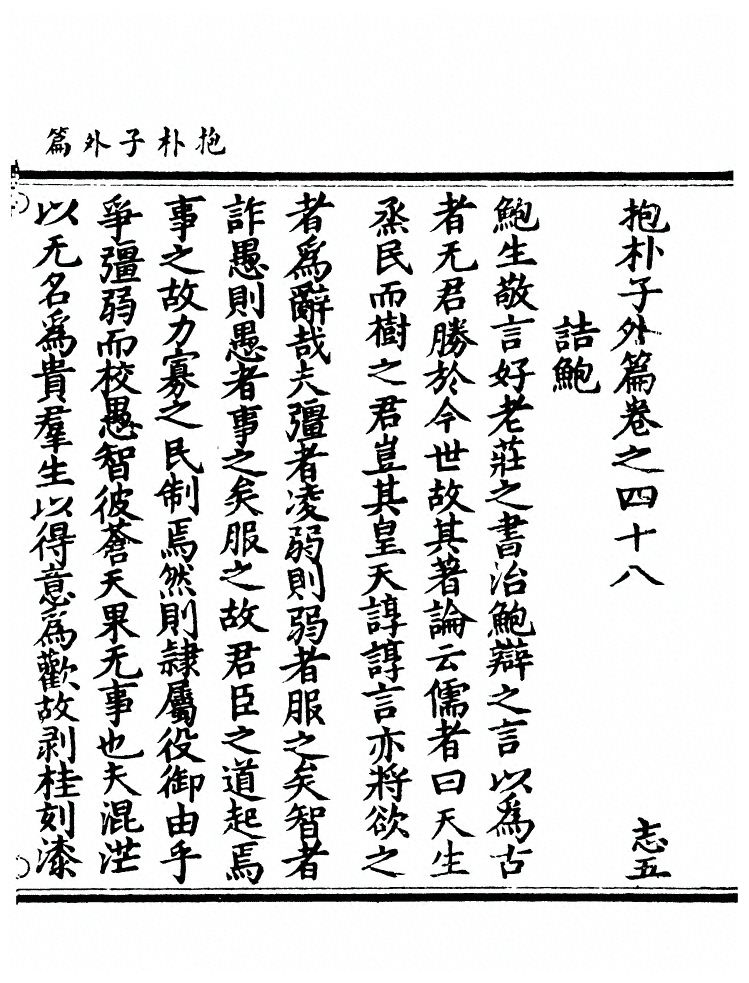 抱朴子外篇
抱朴子外篇卷之四十八
志五
詰鮑
鮑生敬言好老莊之書治鮑辯之言以爲古
者无君勝於今世故其著論云儒者曰天生
烝民而樹之君豈其皇天諄諄言亦將欲之
者爲辭哉夫彊者凌弱則弱者服之矣智者
詐愚則愚者事之矣服之故君臣之道起焉
事之故力寡之民制焉然則隷屬役御由乎
爭彊弱而校愚智彼蒼天果无事也夫混茫
以无名爲貴羣生以得意爲歡故剥桂刻漆